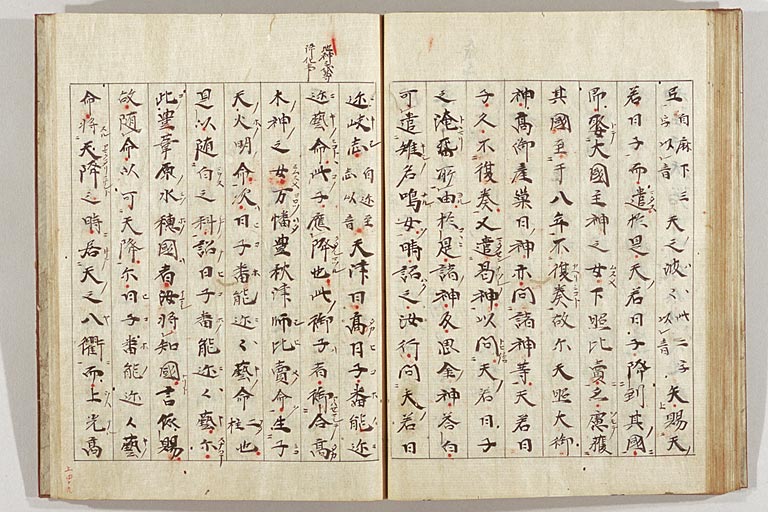 弓自麻下三字以音天之波々此二字以音矢賜天
若日子而遣於是天若日子降到其國
即娶大國主神之女下照比賣亦慮獲
其國至于八年不復奏故尓天照大御
神高御産巣日神亦問諸神等天若日
子久不復奏又遣曷神以問天若日子
之淹留所由於是諸神及思金神答白
可遣雉名鳴女時詔之汝行問天若日
迩岐志自迩至志以音天津日高日子番能迩
迩藝命此子應降也此御子者御合高
木神之女万幡豊秋津師比賣命生子
天火明命次日子番能迩々藝命二柱也
是以随白之科詔日子番能迩々藝尓
此豊葦原水穂國者汝将知國言依賜
故随命以可天降尓日子番能迩々藝
命将天降之時居天之八衢而上光高